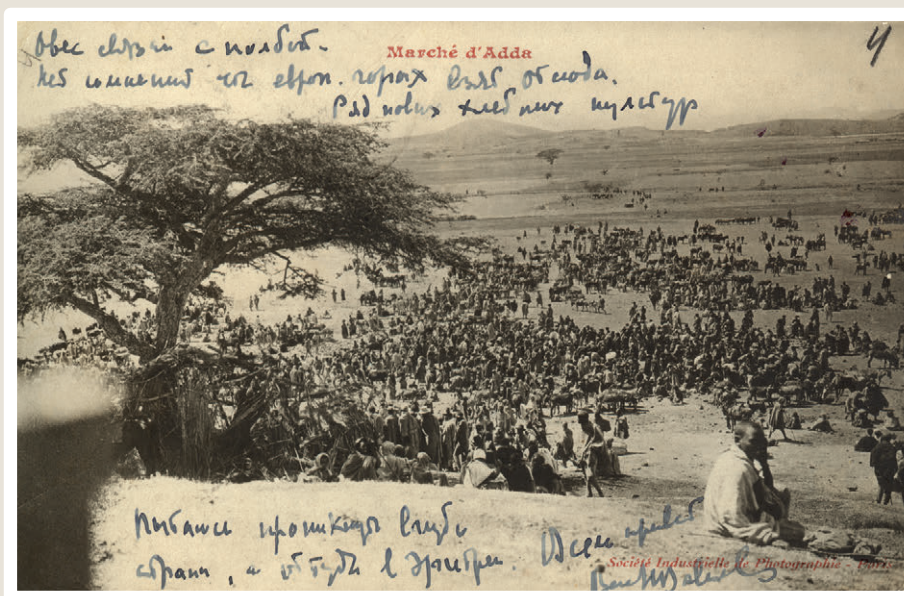 Овес связан с полбой.
Marché d'Adda
4
Нет сомнений что европ. горох взят отсюда.
Ряд новых хлебных культур
Пытаюсь проникнуть вглубь
страны, а оттуда в Эритрею. Всем привет
Société Industrielle de Photographie - Paris